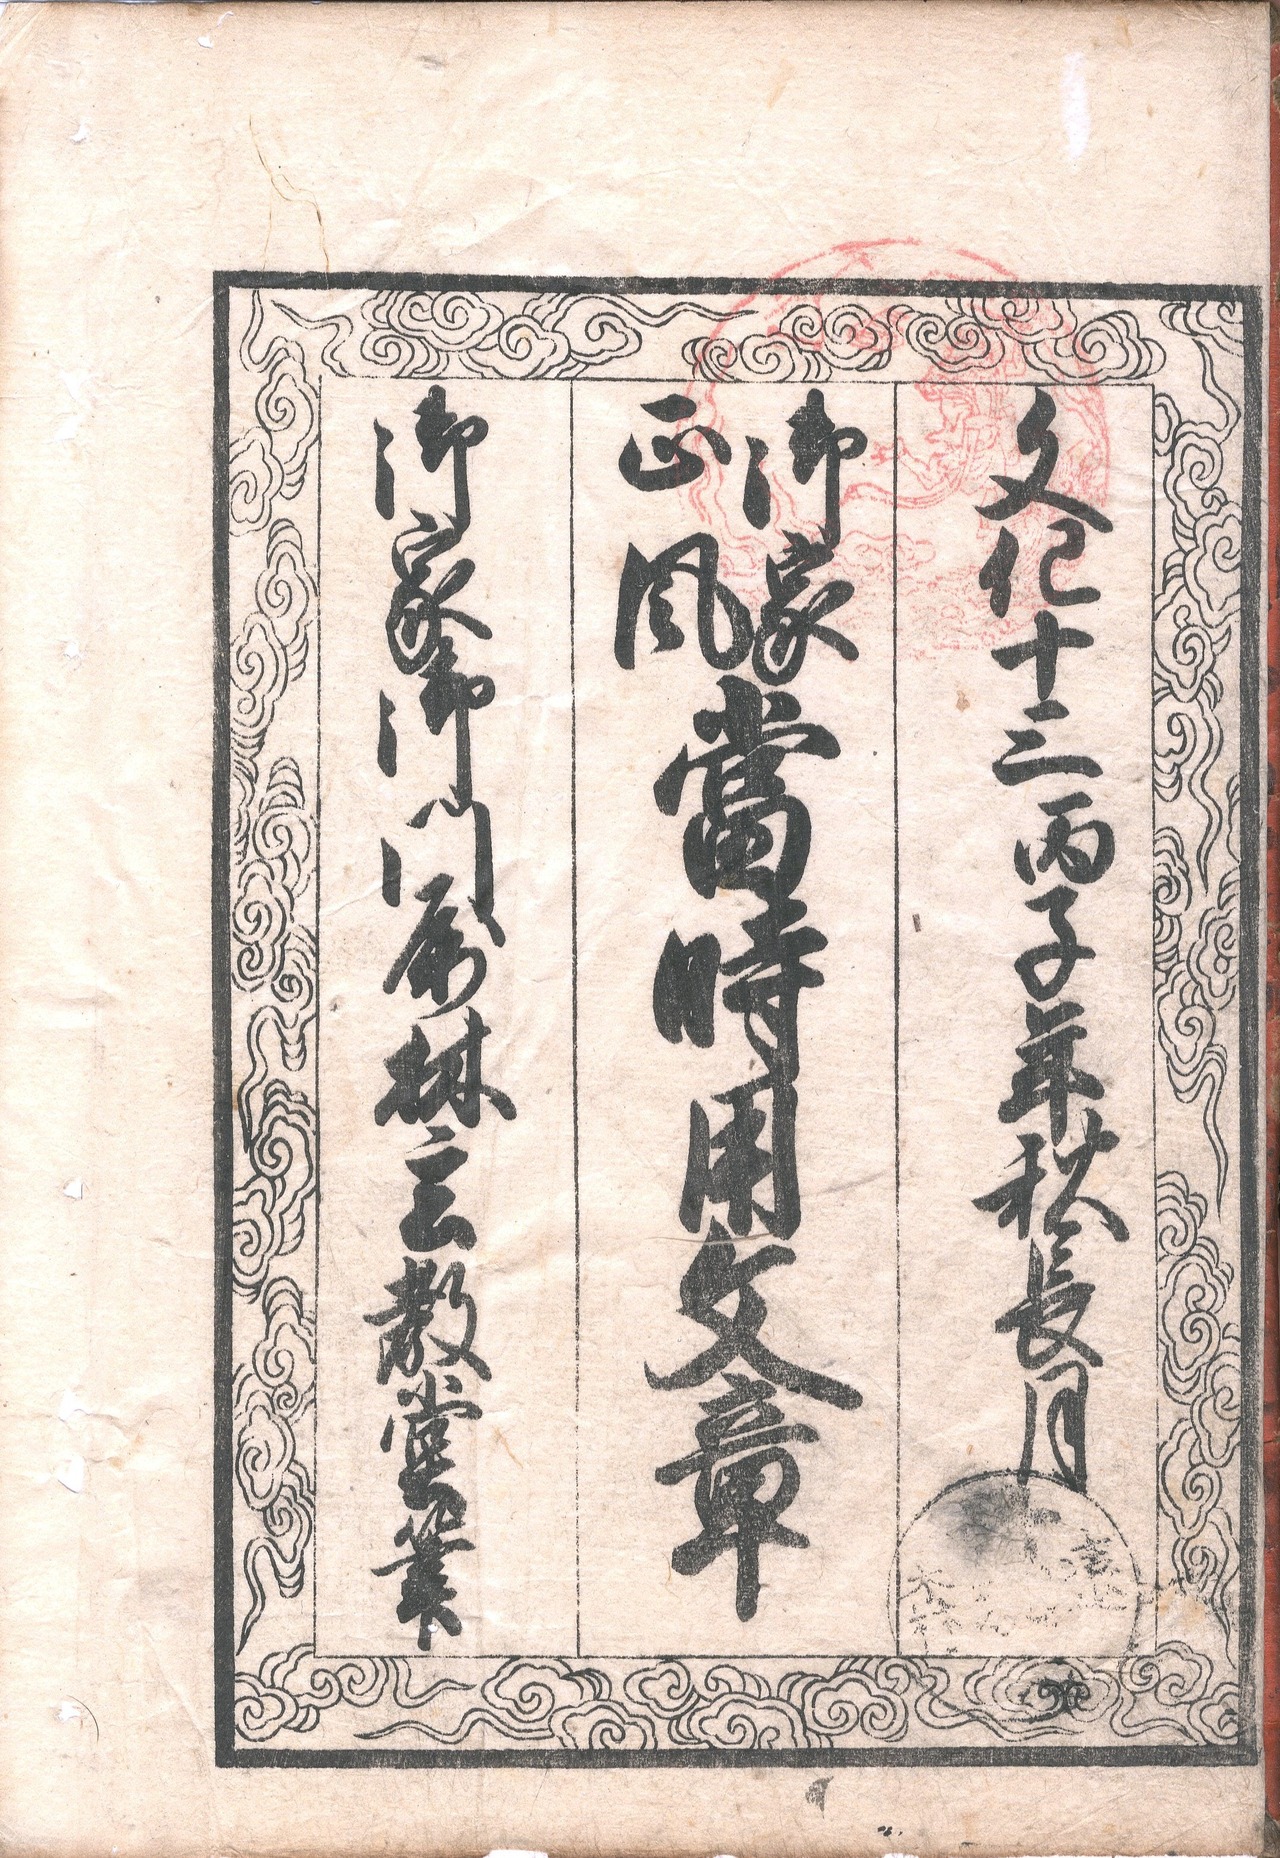 文化十三丙子年秋長月
御家
正風
當時用文章
御家御門属林玄教堂筆